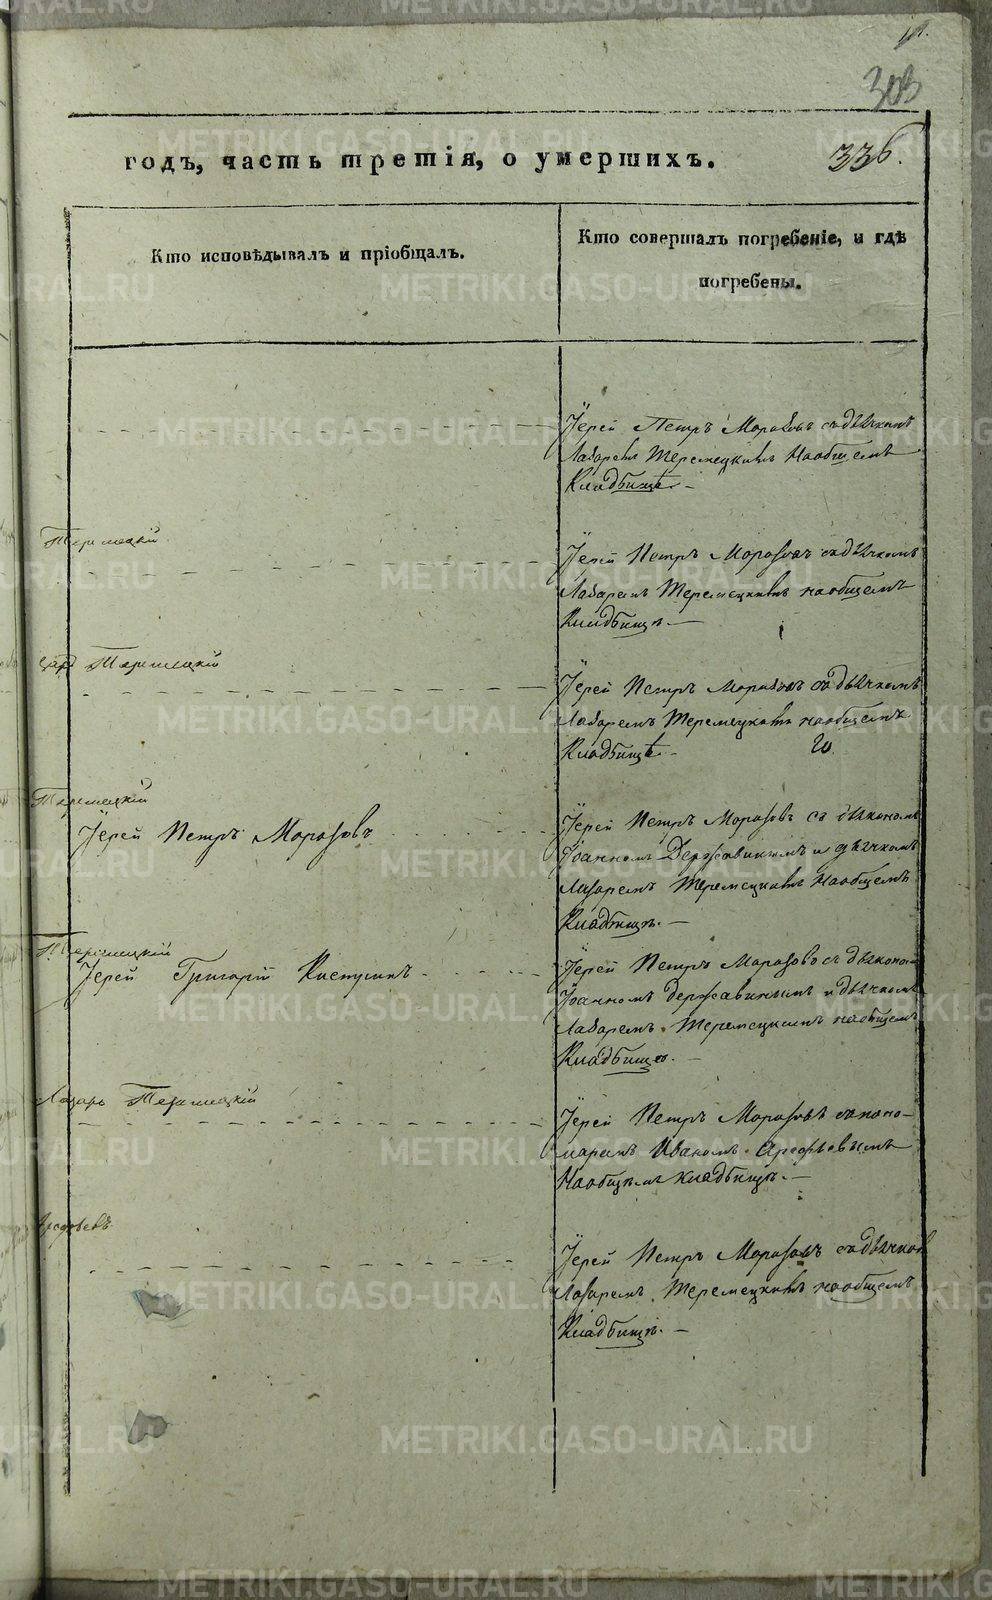 303
годъ, часть третія, о умершихъ.
336.
Кто исповѣдывалъ и пріобщалъ.
Кто совершалъ погребеніе, и гдѣ
погребены.
Іерей Петръ Морозовъ съ дьячкомъ
Лазаремъ Теремецкимъ на общемъ
Кладбищѣ. –
Теремецкій
Іерей Петръ Морозовъ съ дьячкомъ
Лазаремъ Теремецкимъ на общемъ
Кладбищѣ. –
Теремецкій
Іерей Петръ Морозовъ съ дьячкомъ
Лазаремъ Теремецкимъ на общемъ
Кладбищѣ –
Теремецкій
Іерей Петръ Морозовъ
Іерей Петръ Морозовъ съ дьякономъ
Іоанномъ Державинымъ и дьячкомъ
Лазаремъ Теремецкимъ на общемъ
Кладбищѣ. –
Теремецкій
Іерей Григорій
Іерей Петръ Морозовъ съ дьякономъ
Іоанномъ Державинымъ и дьячкомъ
Лазаремъ Теремецкимъ на общемъ
Кладбищѣ. –
Лазарь Теремецкій
Іерей Петръ Морозовъ съ поно-
маремъ Иваномъ Арефьевымъ
На общемъ кладбищѣ. –
Арефьевъ
Іерей Петръ Морозовъ съ дьячком
Лазаремъ Теремецкимъ на общемъ
Кладбищѣ. –
METRIKI.GASO-URAL.RU